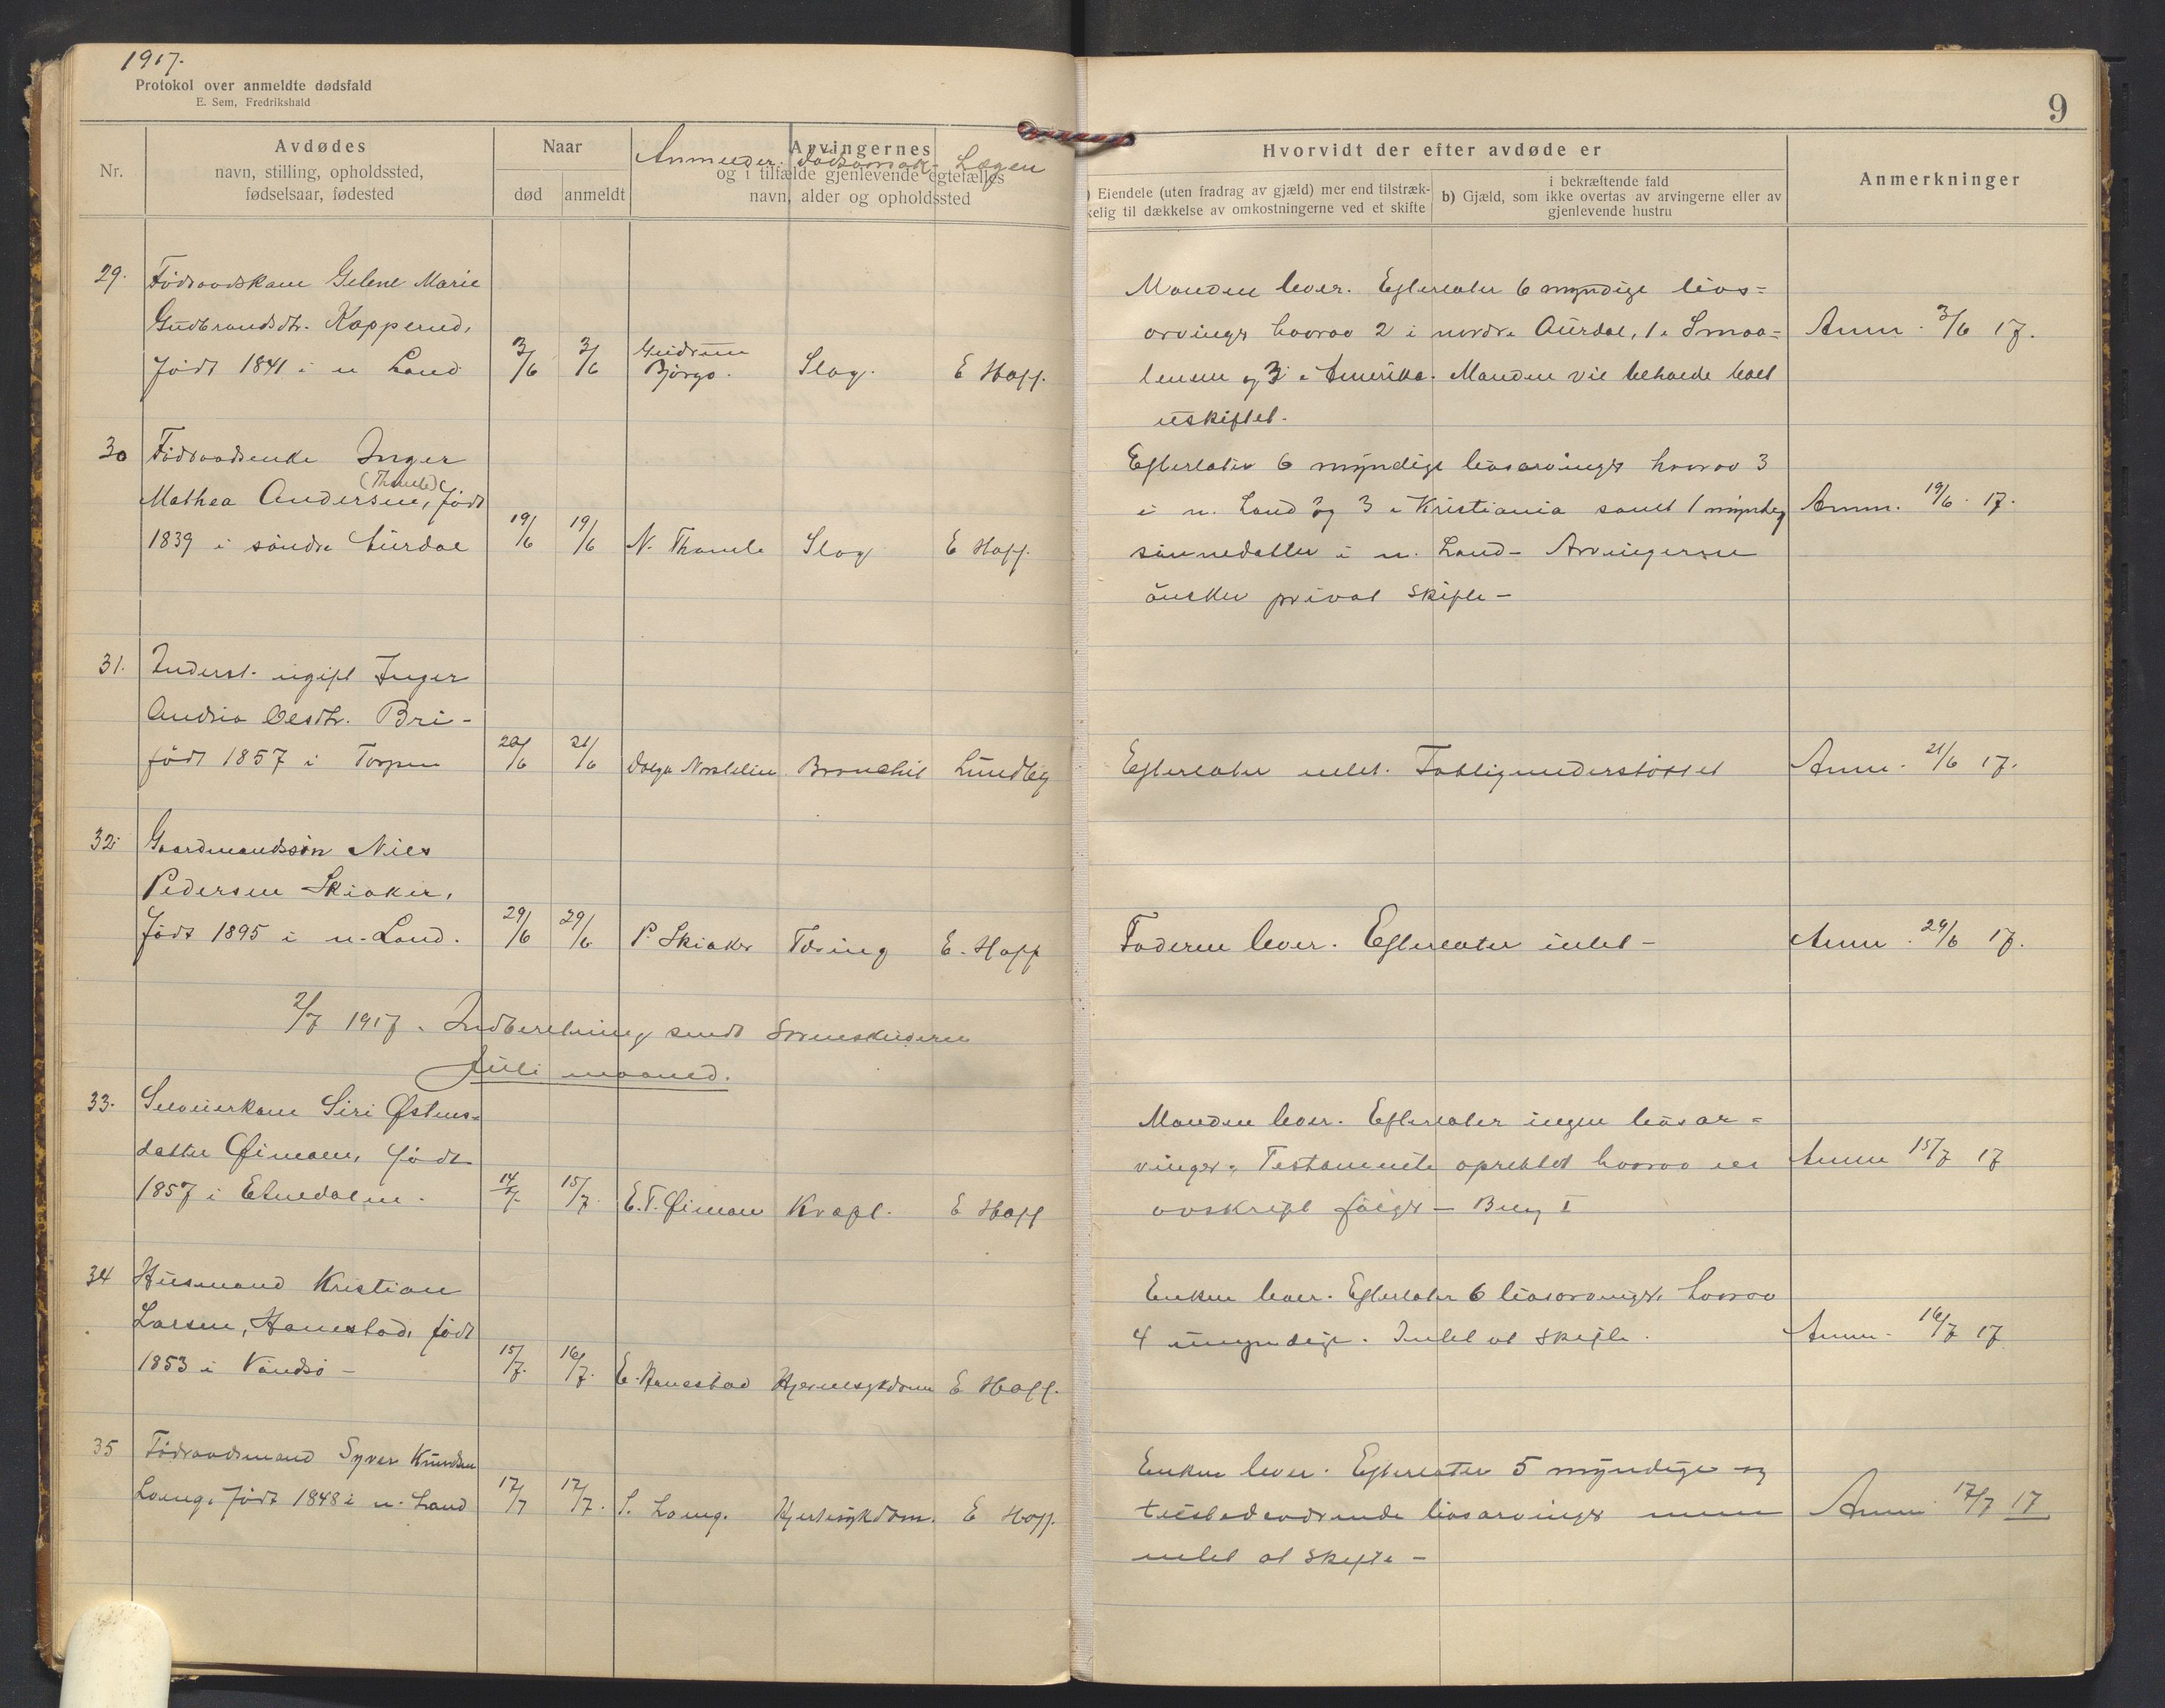 1917.
Protokol over anmeldte dødsfald
E. Sem, Fredrikshald
9
Nr.
Avdødes
navn, stilling, opholdssted,
fødselsaar, fødested
Naar
død
anmeldt
Arvingernes
og i tilfælde gjenlevende egtefælles
navn, alder og opholdssted
Anmelder. Dødsårsak- Lægen
Hvorvidt der efter avdøde er
) Eiendele (uten fradrag av gjæld) mer end tilstræk-
kelig til dækkelse av omkostningerne ved et skifte
i bekræftende fald
b) Gjæld, som ikke overtas av arvingerne eller av
gjenlevende hustru
Anmerkninger
29. Födraadskone Helene Marie
Gudbrandsdtr. Kopperud,
født 1841 i n Land 3/6 3/6 Gudrun Bjørgo. Slag. E Hoff.
Manden lever. Efterlater 6 myndige livs=
arvinger hvorav 2 i nordre Aurdal, 1 i Smaa=
lenene og 3 i Amerika. Manden vil beholde boet
uskiftet.
Anm. 3/6 17.
30 Födraadsenke Inger
(Thomle)
Mathea Andersen, født
1839 i söndre Aurdal 19/6 19/6 N. Thomle Slag E Hoff.
Efterlater 6 myndige livsarvinger hvorav 3
i n. Land og 3 i Kristiania samt 1 myndig
sønnedatter i n. Land- Arvingerne
önsker privat skifte-
Anm. 19/6. 17.
31. Inderst. ugift Inger
Andrea Olesdtr. Bri-
född 1857 i Torpen 20/6 21/6 Nordlien Bronchit Lundby
Efterlater intet. Fattigunderstøttet
Anm. 21/6 17.
32. Gaardmandssön Nils
Pedersen Skiaker,
født 1895 i n. Land. 29/6 29/6 P. Skiaker Tæring E. Hoff
Faderen lever. Efterlater intet-
Anm. 29/6 17.
2/7 1917. Indberetning sendt Sorenskriveren
Juli maaned.
33. Selveierkone Siri Østens=
datter Øimoen, født
1857 i Etnedalen. 14/7. 15/7. E.T. Øimoen Kræft. E Hoff
Manden lever. Efterlater ingen livsar=
vinger, Testamente oprettet hvorav en
avskrift følger- Bilag I
Anm 15/7 17
34 Husmand Kristian
Larsen, Hanestad, født
1853 i Vardal - 15/7. 16/7. E. Hanestad Hjernesykdom E Hoff.
Enken lever. Efterlater 6 livsarvinger, hvorav
4 umyndige. Intet at skifte.
Anm. 16/7 17
35 Födraadsmand Syver Knudsen
Loeng, født 1848 i n. Land 17/7 17/7. S. Loeng. Hjertesykdom. E Hoff.
Enken lever. Efterlater 5 myndige og
tilstedeværende livsarvinger men
intet at skifte-
Anm. 17/7 17